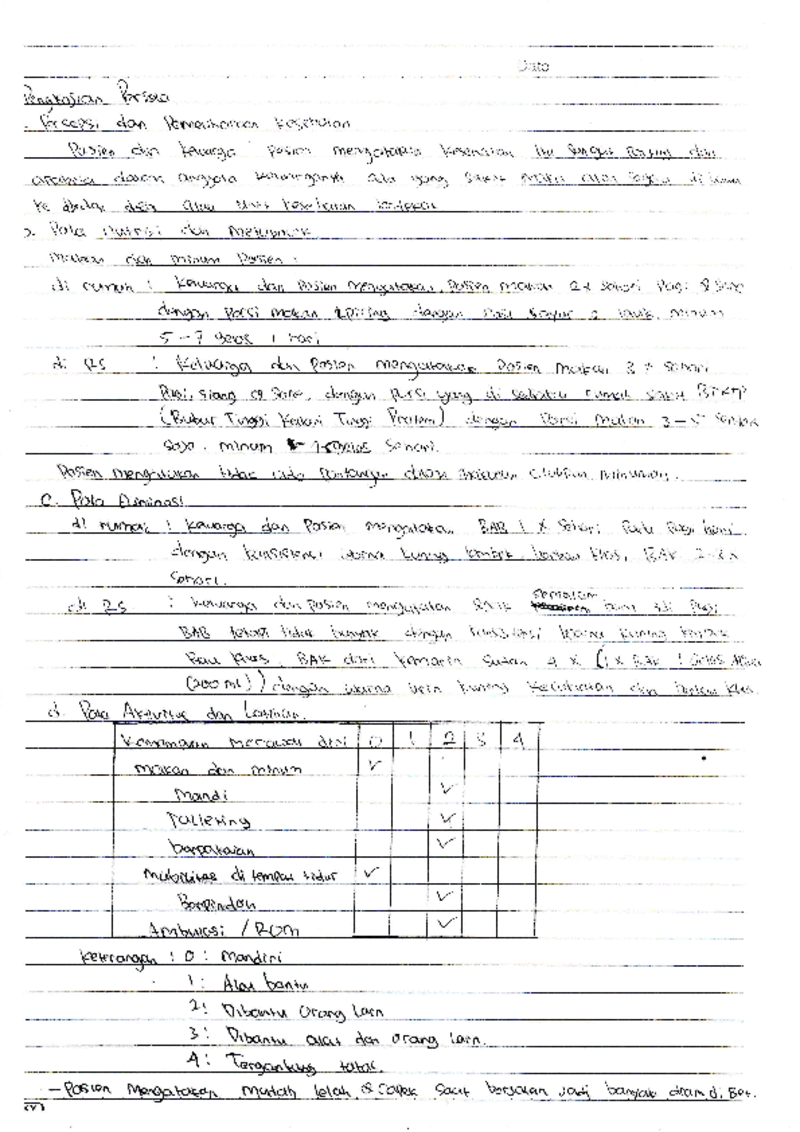 Date
Pengkajian Persis
. Persepsi dan Pemeliharaan kesehatan
Pasien dan keluarga pasien mengatakan kesehatan itu sangat penting dan
apabila dalam anggota keluarganya ada yang sakit maka akan segera di bawa
ke dokter dan atau unit kesehatan terdekat
b. Pola Nutrisi dan Metabolik
Makan dan minum Pasien :
di rumah : keluarga dan Pasien mengatakan, Pasien makan 2x sehari Pagi & Sore
dengan Porsi makan 1 piring dengan nasi sayur & lauk, minum
5 - 7 gelas 1 hari
di RS : Keluarga dan Pasien mengatakan Pasien makan 3 x sehari
Pagi, siang & sore, dengan porsi yang di rumah sakit BTKTP
(Bubur Tinggi Kalori Tinggi Protein) dengan Porsi makan 3 - 5 sendok
saja. minum gelas sehari.
Pasien mengatakan tidak ada pantangan dalam makanan ataupun minuman.
C. Pola Eliminasi
di rumah : keluarga dan Pasien mengatakan BAB 1 x sehari Pada Pagi hari
dengan konsistensi warna kuning lembek, berbau khas, BAK
sehari.
di RS : keluarga dan pasien mengatakan semalam
BAB tetapi tidak banyak dengan konsistensi warna kuning
Bau khas, BAK dari kemarin sudah 4 x (1 x BAK 1 Gelas
(200 ml)) dengan warna urin kuning kecoklatan dan berbau khas.
d. Pola Aktivitas dan Latihan.
Kemampuan merawat diri 0 1 2 3 4
Makan dan minum ✓
Mandi ✓
Toileting ✓
berpakaian ✓
Mobilitas di tempat tidur ✓
Berpindah ✓
Ambulasi / ROM ✓
Keterangan : 0 : Mandiri
1 : Alat bantu
2 : Dibantu Orang lain
3 : Dibantu alat dan orang lain.
4 : Tergantung total.
- Pasien Mengatakan mudah lelah & capek saat berjalan jadi banyak diam di Bet.